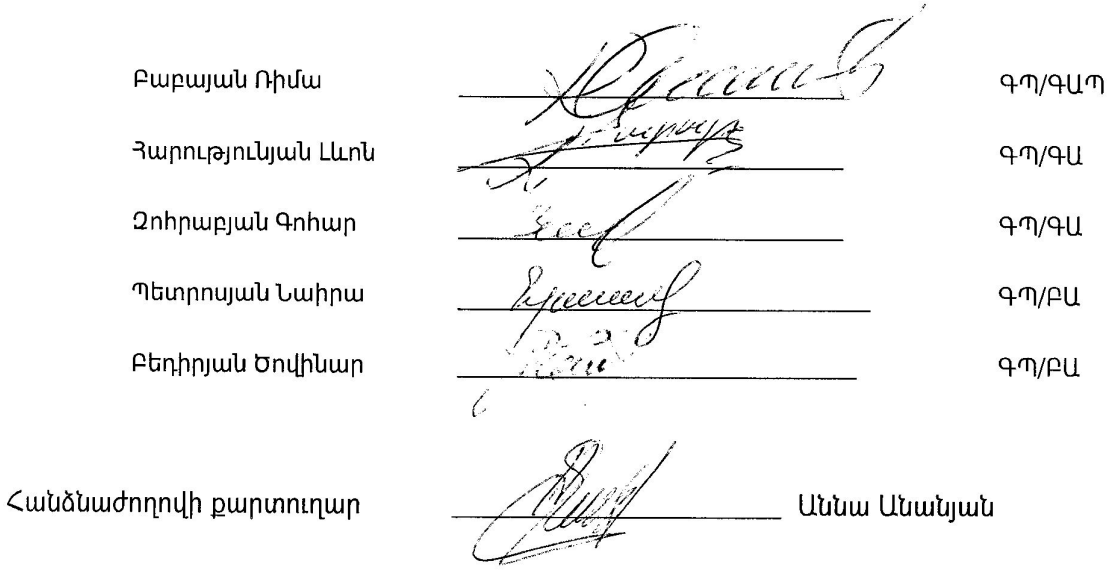 Բաբայան Ռիմա ԳՊ/ԳԱՊ
Հարությունյան Լևոն ԳՊ/ԳԱ
Զոհրաբյան Գոհար ԳՊ/ԳԱ
Պետրոսյան Նաիրա ԳՊ/ԲԱ
Բեդիրյան Ծովինար ԳՊ/ԲԱ
Հանձնաժողովի քարտուղար Աննա Անանյան